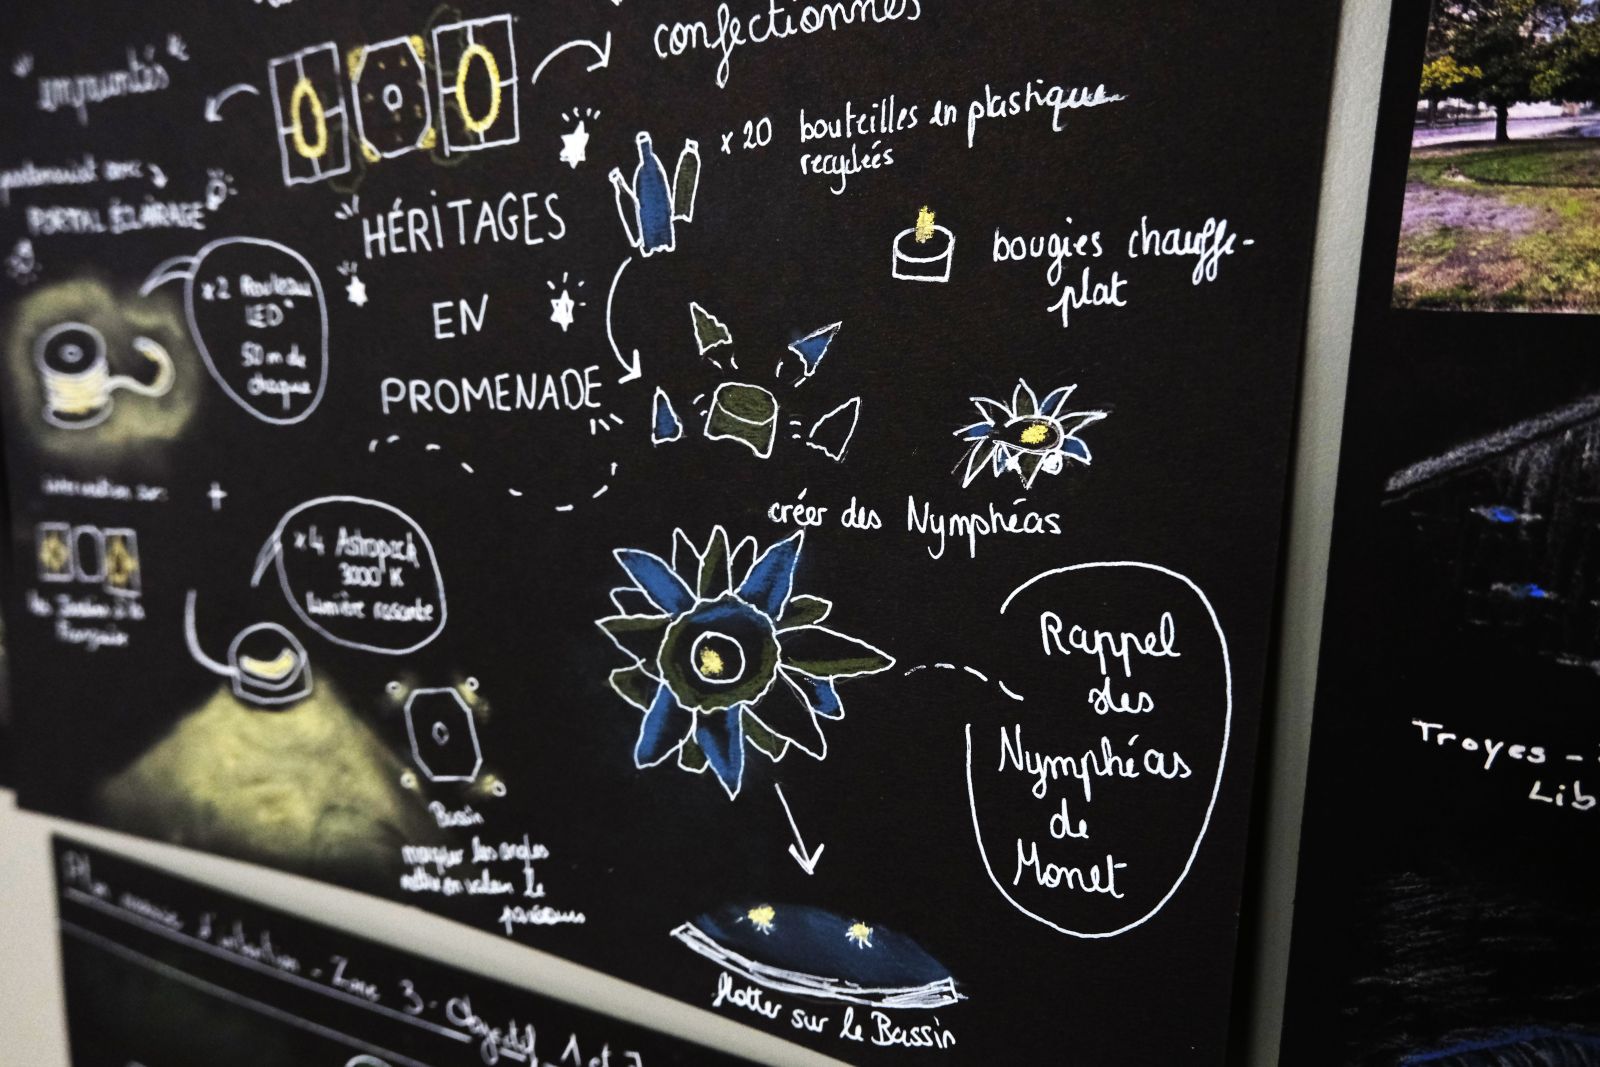 confectionnés
"empruntés"
partenariat avec
PORTAL ÉCLAIRAGE
x 20 bouteilles en plastique
recyclées
HÉRITAGES
EN
PROMENADE
bougies chauffe-
plat
x2 Rouleau
LED
50 m de
chaque
créer des Nymphéas
intervention sur
+
x4 Astropack
3000°K
Lumière rasante
Française
Rappel
des
Nymphéas
de
Monet
Bassin
marquer les angles
mettre en valeur le
parcours
flotter sur le Bassin
d'intention - Zone 3 - Objectif 1 et
Troyes -
Lib